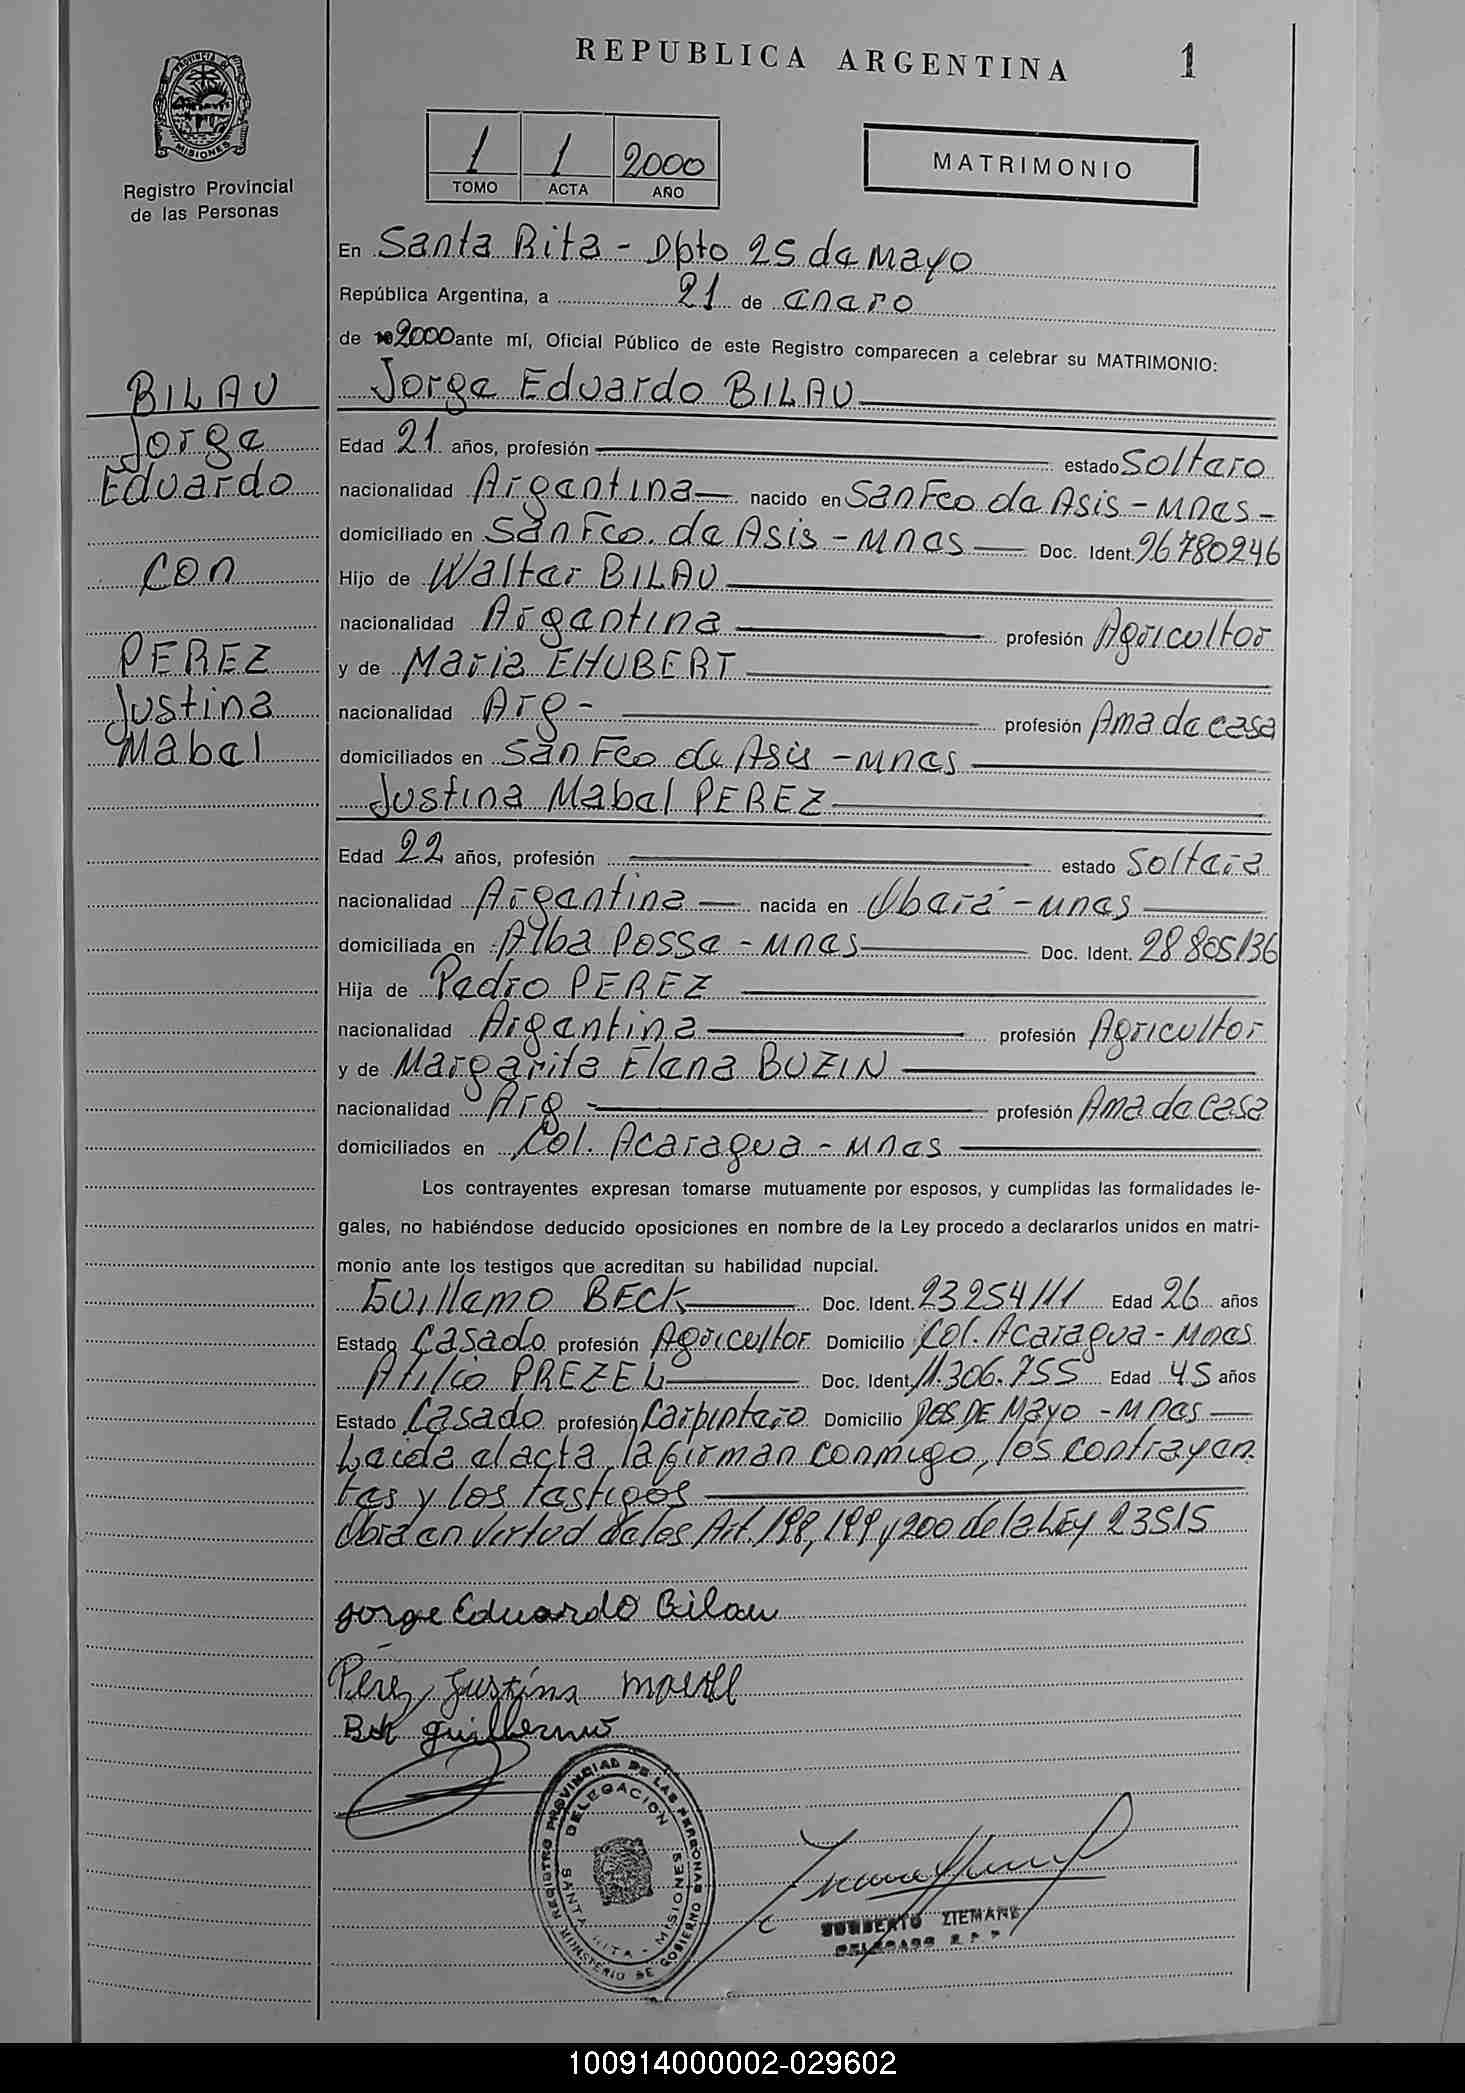 REPUBLICA ARGENTINA
1
PROVINCIA DE
MISIONES
Registro Provincial
de las Personas
1 1 2000
TOMO ACTA AÑO
MATRIMONIO
En Santa Rita - Dpto 25 de Mayo
República Argentina, a 21 de enero
de 2000 ante mí, Oficial Público de este Registro comparecen a celebrar su MATRIMONIO:
BILAU
Jorge
Eduardo
con
PEREZ
Justina
Mabel
Jorge Eduardo BILAU
Edad 21 años, profesión estado Soltero
nacionalidad Argentina nacido en San Fco de Asis - Mnes -
domiciliado en San Fco. de Asis - Mnes Doc. Ident. 26780246
Hijo de Walter BILAU
nacionalidad Argentina profesión Agricultor
y de Maria EHUBERT
nacionalidad Arg - profesión Ama de casa
domiciliados en San Fco de Asis - Mnes
Justina Mabel PEREZ
Edad 22 años, profesión estado Soltera
nacionalidad Argentina nacida en Oberá - Mnes
domiciliada en Alba Posse - Mnes Doc. Ident. 28805136
Hija de Pedro PEREZ
nacionalidad Argentina profesión Agricultor
y de Margarita Elena BUZIN
nacionalidad Arg profesión Ama de casa
domiciliados en Col. Acaragua - Mnes
Los contrayentes expresan tomarse mutuamente por esposos, y cumplidas las formalidades le-
gales, no habiéndose deducido oposiciones en nombre de la Ley procedo a declararlos unidos en matri-
monio ante los testigos que acreditan su habilidad nupcial.
Guillemo BECK Doc. Ident. 23254111 Edad 26 años
Estado Casado profesión Agricultor Domicilio Col. Acaragua - Mnes
Atilio PREZEL Doc. Ident. 11.306.755 Edad 45 años
Estado Casado profesión Carpintero Domicilio DE MAYO - Mnes
Leida el acta, la firman conmigo, los contrayen
tes y los testigos
Obra en virtud de los Art. 198, 199 y 200 de la Ley 23515
Jorge Eduardo Bilau
Pérez, Justina Mabel
Bek Guillermo
REGISTRO PROVINCIAL DE LAS PERSONAS
DELEGACION
SANTA RITA - MISIONES
MINISTERIO DE GOBIERNO
HUMBERTO ZIEMANN
DELEGADO R. P. P.
100914000002-029602